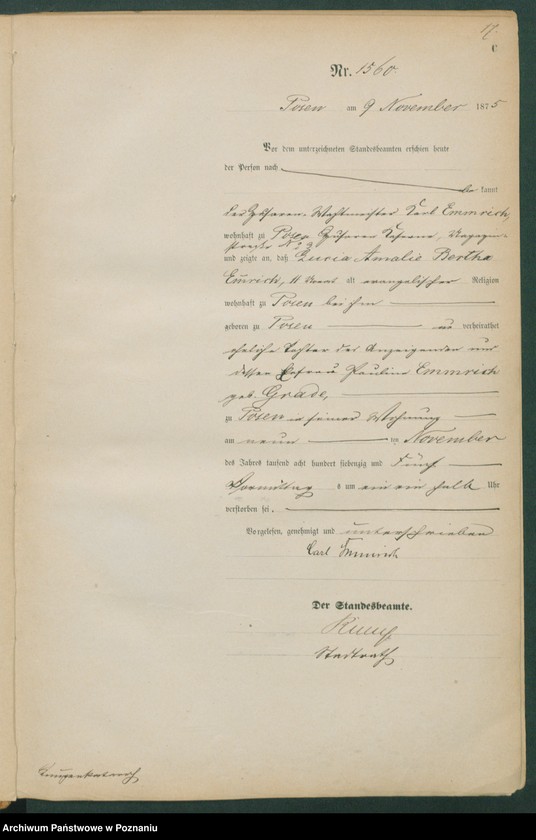 17.
C
Nr. 1560.
Posen am 9 November 1875
Vor dem unterzeichneten Standesbeamten erschien heute
der Person nach
be kannt
der Husaren-Wachtmeister Karl Emmrich,
wohnhaft zu Posen Husaren Kaserne, Magazin-
straße No 2
und zeigte an, daß Lucia Amalie Bertha
Emrich, alt evangelischer Religion
wohnhaft zu Posen bei ihm
geboren zu Posen un verheirathet
eheliche Tochter des Anzeigenden und
dessen Ehefrau Pauline Emmrich
geb. Grade,
zu Posen in seiner Wohnung
am neun ten November
des Jahres tausend acht hundert siebenzig und fünf
Vormittag s um ein ein halb Uhr
verstorben sei.
Vorgelesen, genehmigt und unterschrieben
Carl Emmrich
Der Standesbeamte.
Stadtrath
Lungenkatarrh
Archiwum Państwowe w Poznaniu